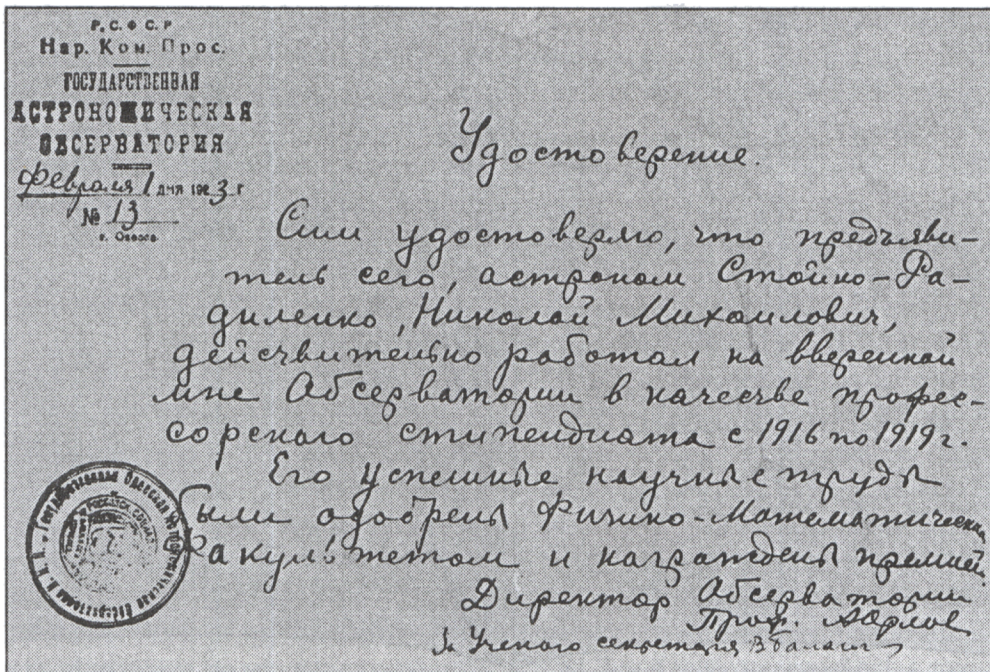 Р.С.Ф.С.Р
Нар. Ком. Прос.
ГОСУДАРСТВЕННАЯ
АСТРОНОМИЧЕСКАЯ
ОБСЕРВАТОРИЯ
Февраля 1 дня 1923 г
№ 13
г. Одесса
Удостоверение.
Сим удостоверяю, что предъяви-
тель сего, астроном Стойко-Ра-
диленко, Николай Михайлович,
действительно работал на вверенной
мне Обсерватории в качестве профес-
сорского стипендиата с 1916 по 1919 г.
Его успешные научные труды
были одобрены Физико-Математическим
факультетом и награждены премией.
Директор Обсерватории
Проф. А Орлов
За Ученого секретаря